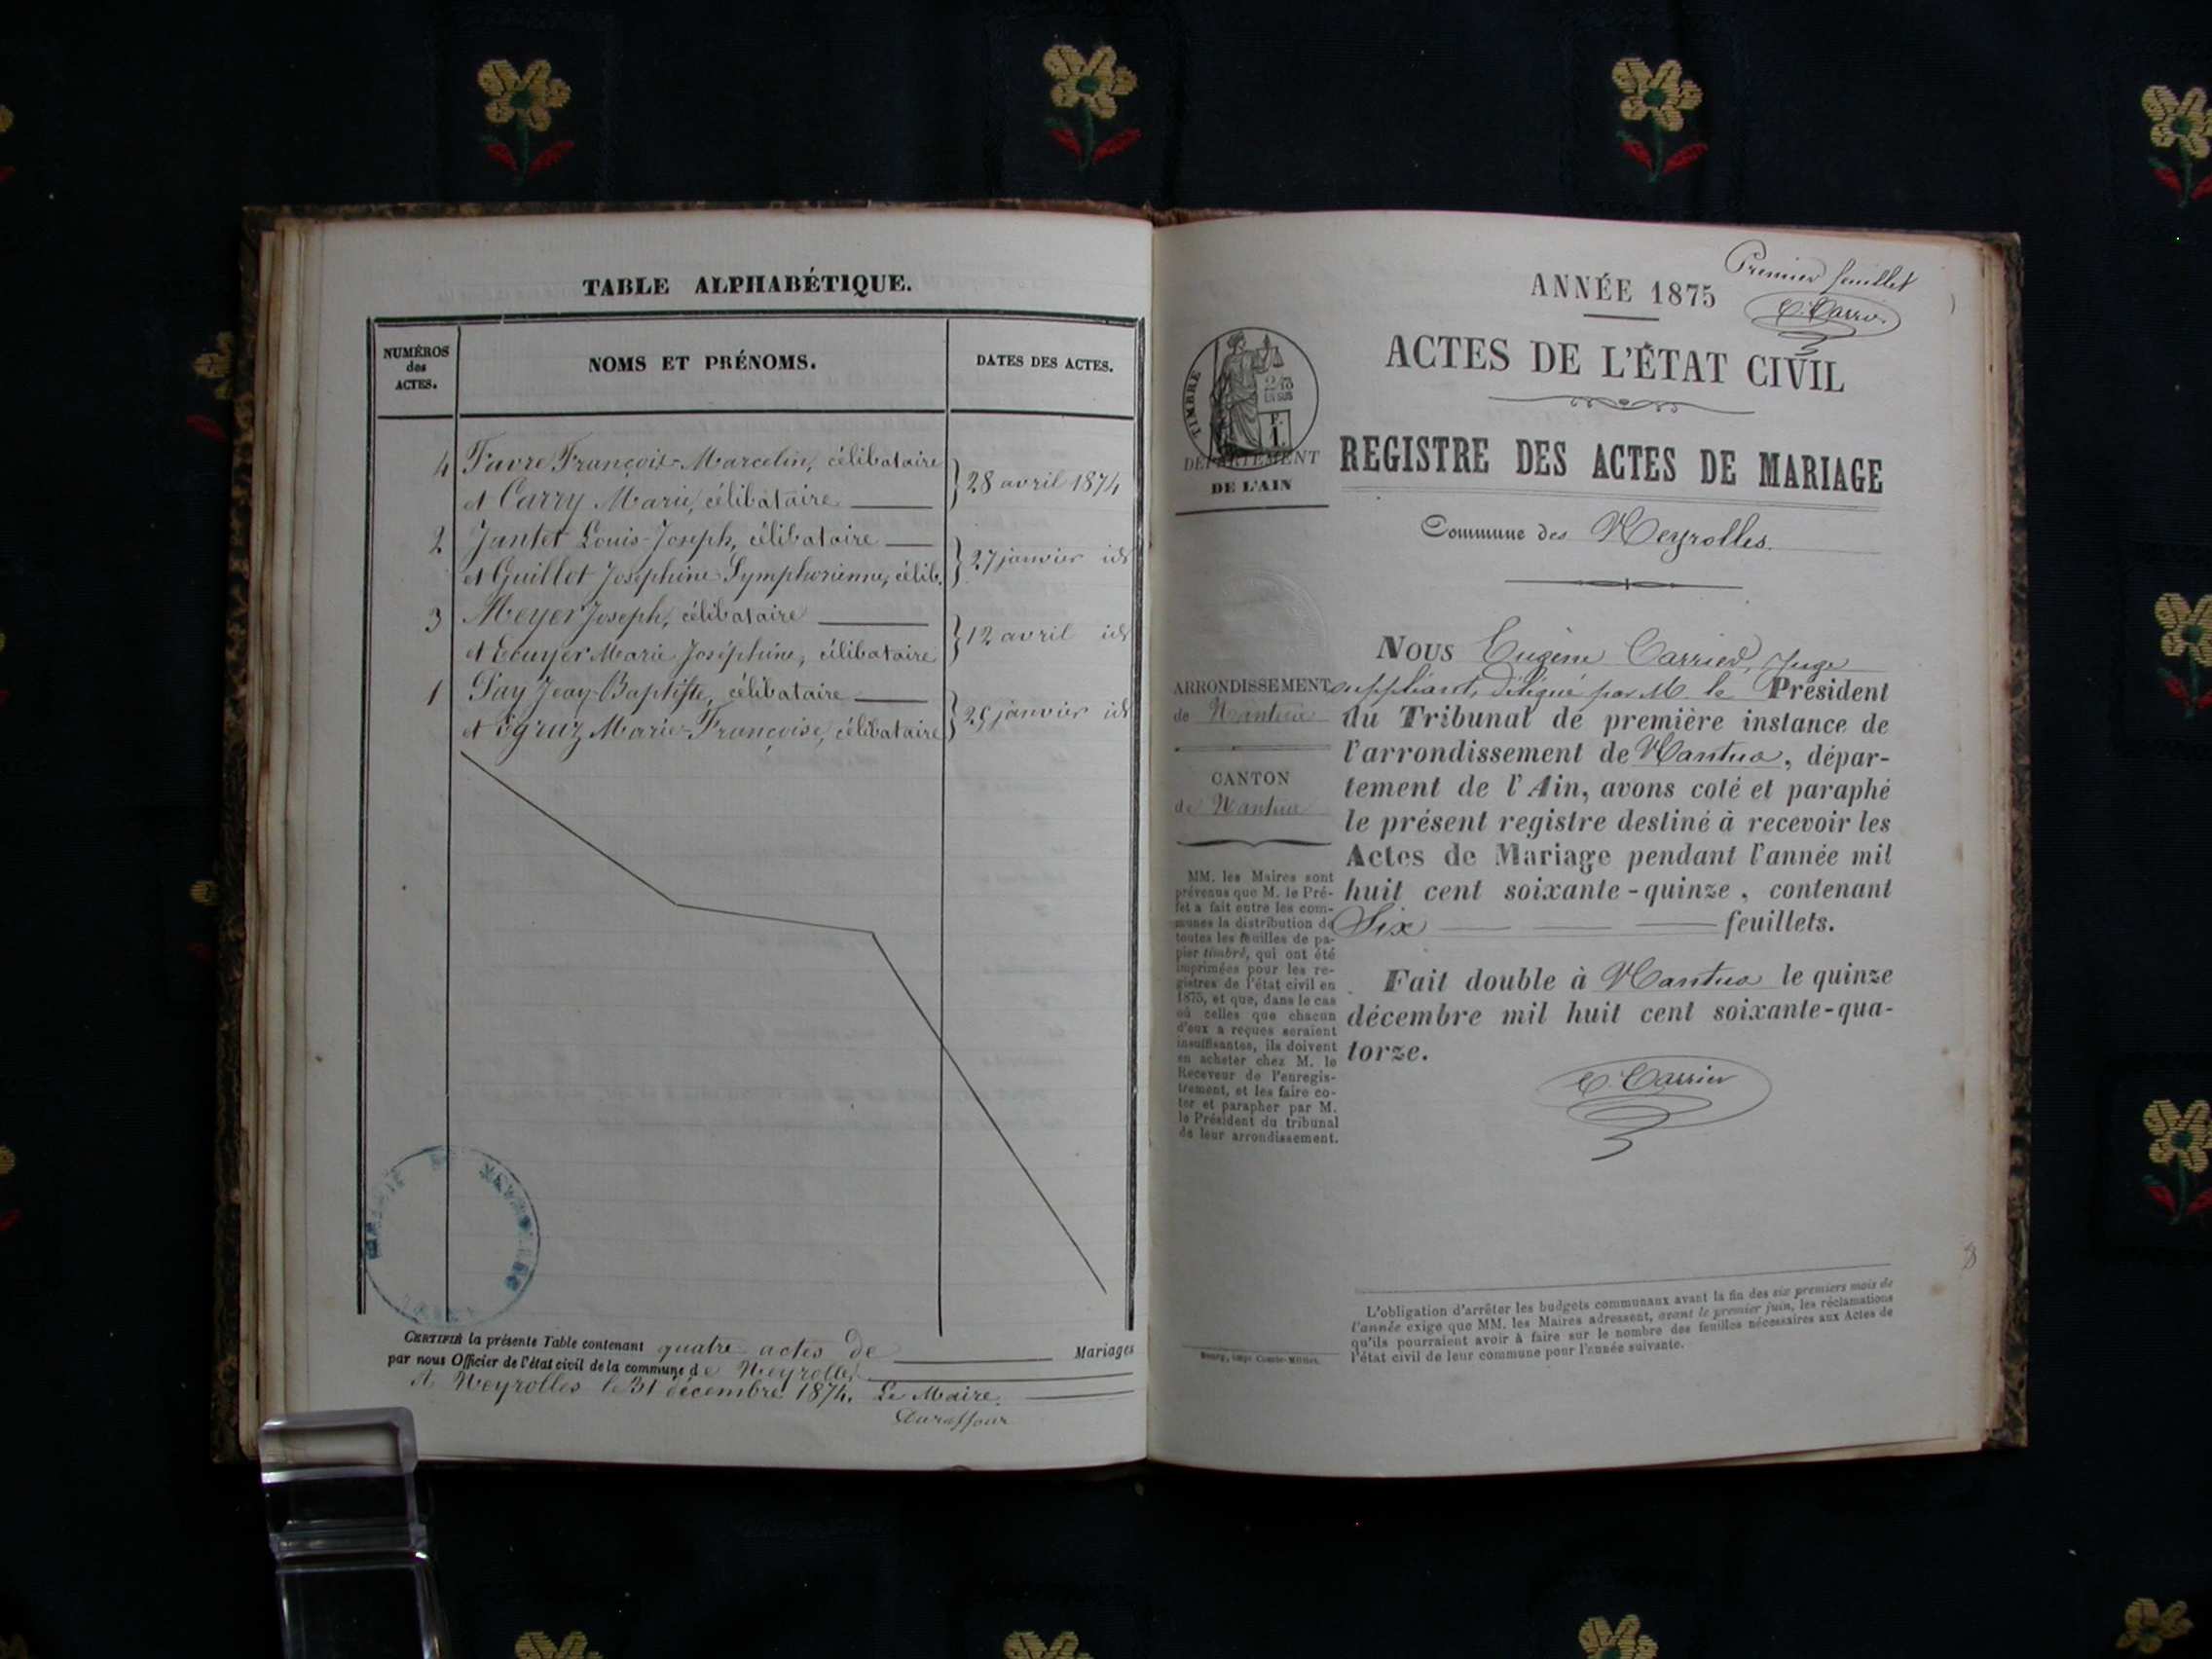 TABLE ALPHABÉTIQUE.
NUMÉROS
des
ACTES.
NOMS ET PRÉNOMS.
DATES DES ACTES.
4 Favre François-Marcelin, célibataire
et Carry Marie, célibataire
28 avril 1874
2 Jantet Louis-Joseph, célibataire
et Guillot Joséphine Symphorienne, célib.
27 janvier id
3 Meyer Joseph, célibataire
et Ecuyer Marie Joséphine, célibataire
12 avril id
1 Pay Jean-Baptiste, célibataire
et Egraz Marie-Françoise, célibataire
25 janvier id
CERTIFIÉ la présente Table contenant quatre actes de Mariages
par nous Officier de l'état civil de la commune de Neyrolles
A Neyrolles le 31 décembre 1874. Le Maire.
Durafour
Premier feuillet
E. Carrier
ANNÉE 1875
ACTES DE L'ÉTAT CIVIL
TIMBRE
2/10
EN SUS
F.
1.
DÉPARTEMENT
DE L'AIN
REGISTRE DES ACTES DE MARIAGE
Commune des Neyrolles.
ARRONDISSEMENT
de Nantua
CANTON
de Nantua
MM. les Maires sont
prévenus que M. le Pré-
fet a fait entre les com-
munes la distribution de
toutes les feuilles de pa-
pier timbré, qui ont été
imprimées pour les re-
gistres de l'état civil en
1875, et que, dans le cas
où celles que chacun
d'eux a reçues seraient
insuffisantes, ils doivent
en acheter chez M. le
Receveur de l'enregis-
trement, et les faire co-
ter et parapher par M.
le Président du tribunal
de leur arrondissement.
NOUS Eugène Carrier, Juge
suppléant, délégué par M. le Président
du Tribunal de première instance de
l'arrondissement de Nantua, dépar-
tement de l'Ain, avons coté et paraphé
le présent registre destiné à recevoir les
Actes de Mariage pendant l'année mil
huit cent soixante-quinze, contenant
Six feuillets.
Fait double à Nantua le quinze
décembre mil huit cent soixante-qua-
torze.
E. Carrier
L'obligation d'arrêter les budgets communaux avant la fin des six premiers mois de
l'année exige que MM. les Maires adressent, avant le premier juin, les réclamations
qu'ils pourraient avoir à faire sur le nombre des feuilles nécessaires aux Actes de
l'état civil de leur commune pour l'année suivante.
Bourg, imp. Comte-Milliet.